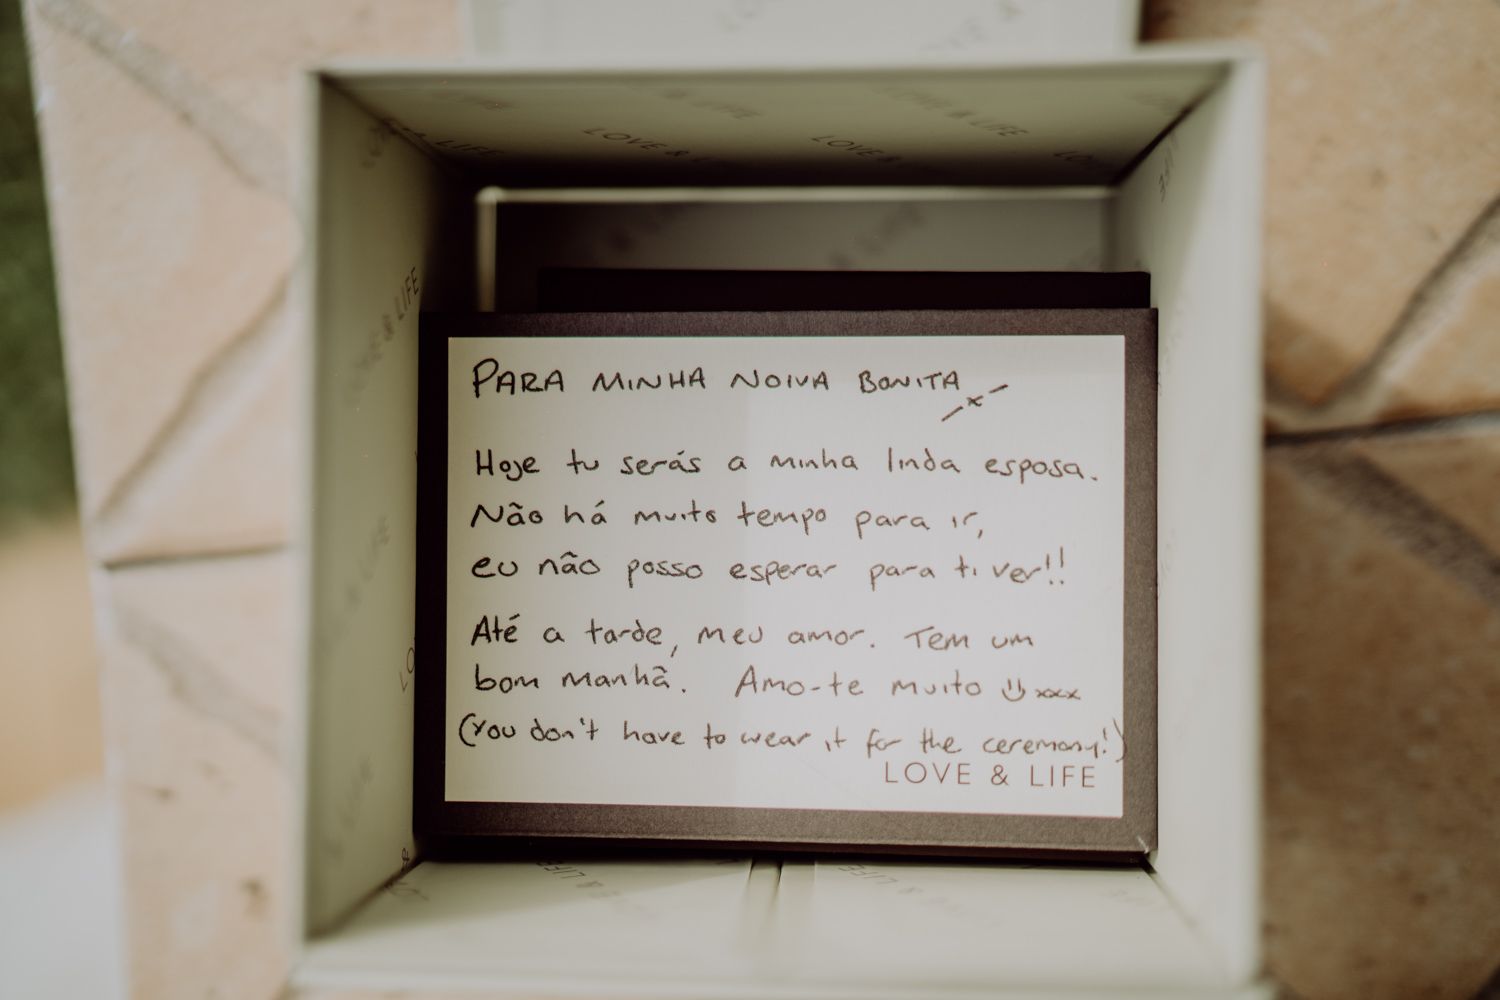 PARA MINHA NOIVA BONITA
x
Hoje tu serás a minha linda esposa.
Não há muito tempo para ir,
eu não posso esperar para ti ver!!
Até a tarde, meu amor. Tem um
bom manhã. Amo-te muito :) xxx
(You don't have to wear it for the ceremony!)
LOVE & LIFE
LOVE & LIFE
LOVE &
LIFE